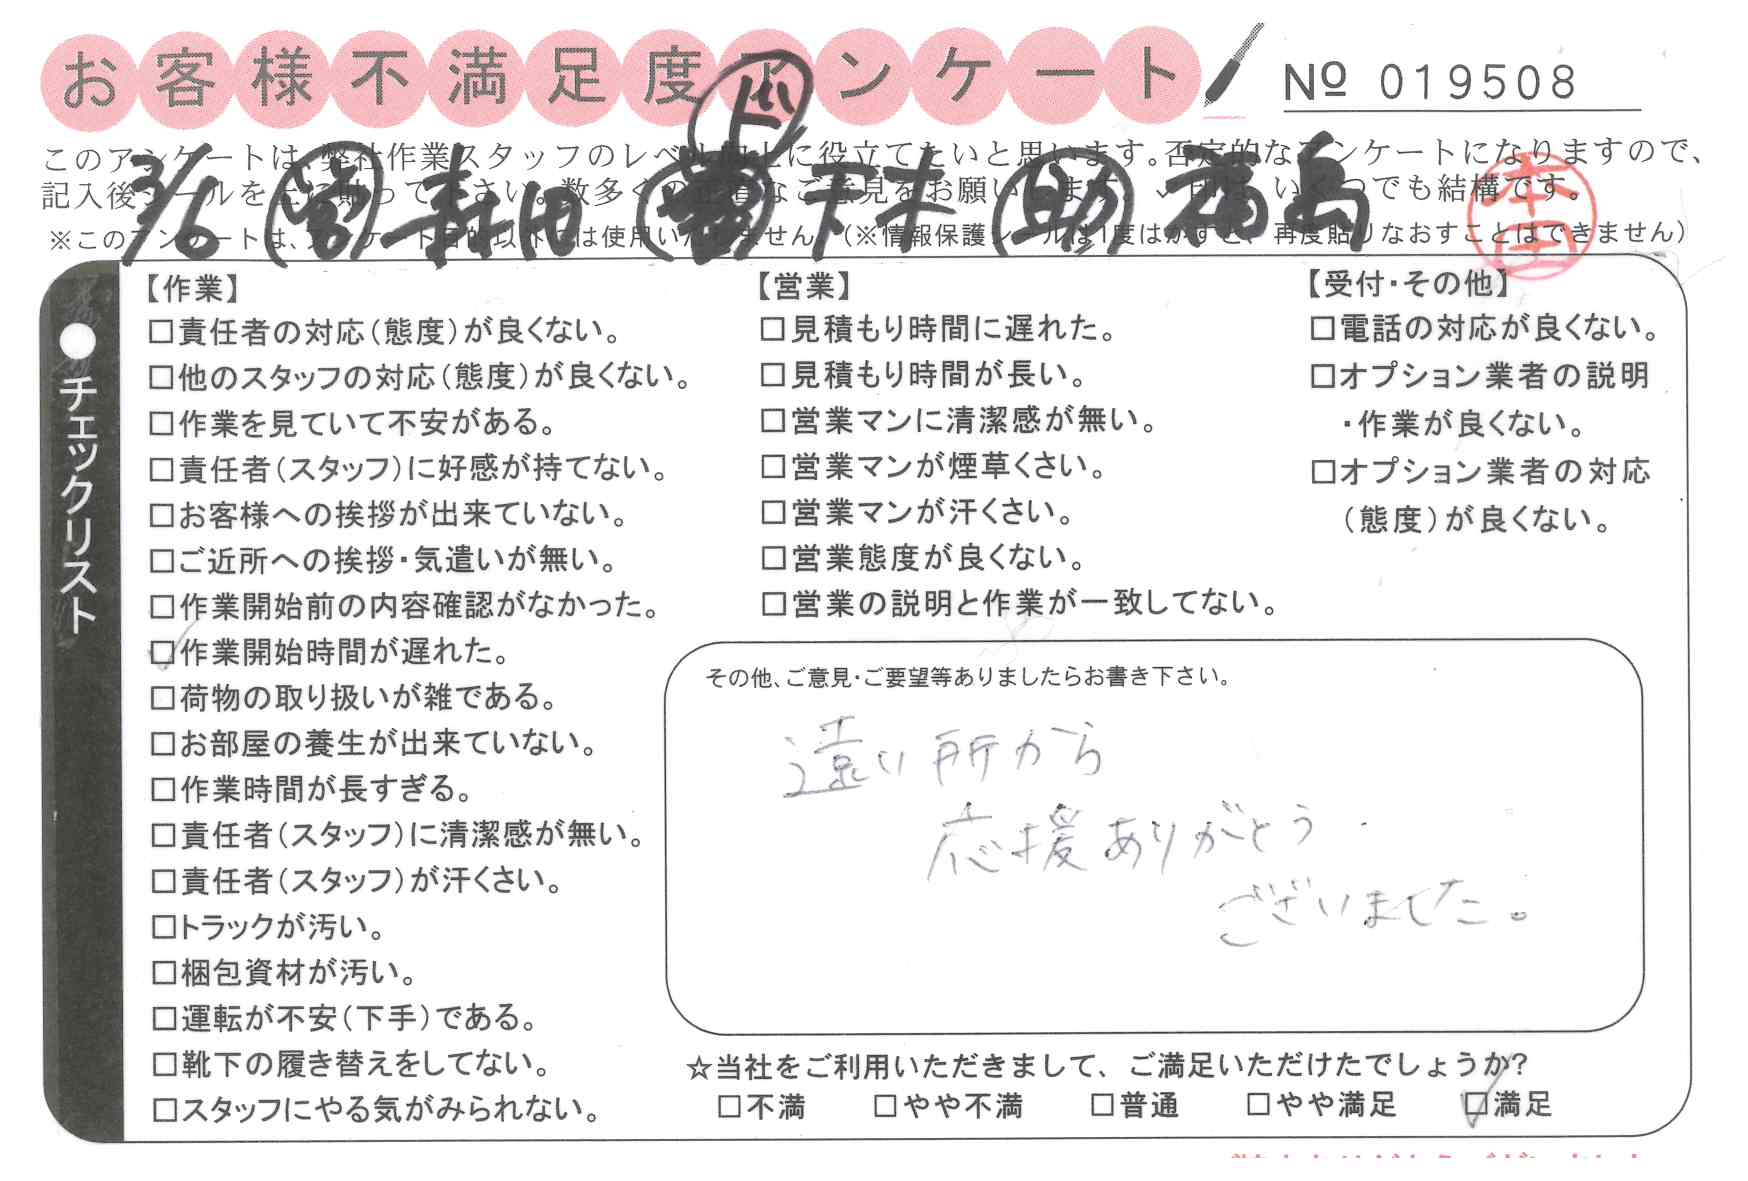 お客様不満足度アンケート
№ 019508
このアンケートは、弊社作業スタッフのレベル向上に役立てたいと思います。否定的なアンケートになりますので、
記入後シールを上に貼って下さい。数多くの正直なご意見をお願いします。✓印は、いくつでも結構です。
※このアンケートは、アンケート目的以外では使用いたしません。(※情報保護シールは1度はがすと、再度貼りなおすことはできません)
3/6 営 下木 助 福島
本田
●チェックリスト
【作業】
□責任者の対応(態度)が良くない。
□他のスタッフの対応(態度)が良くない。
□作業を見ていて不安がある。
□責任者(スタッフ)に好感が持てない。
□お客様への挨拶が出来ていない。
□ご近所への挨拶・気遣いが無い。
□作業開始前の内容確認がなかった。
□作業開始時間が遅れた。
□荷物の取り扱いが雑である。
□お部屋の養生が出来ていない。
□作業時間が長すぎる。
□責任者(スタッフ)に清潔感が無い。
□責任者(スタッフ)が汗くさい。
□トラックが汚い。
□梱包資材が汚い。
□運転が不安(下手)である。
□靴下の履き替えをしてない。
□スタッフにやる気がみられない。
【営業】
□見積もり時間に遅れた。
□見積もり時間が長い。
□営業マンに清潔感が無い。
□営業マンが煙草くさい。
□営業マンが汗くさい。
□営業態度が良くない。
□営業の説明と作業が一致してない。
【受付・その他】
□電話の対応が良くない。
□オプション業者の説明
・作業が良くない。
□オプション業者の対応
(態度)が良くない。
その他、ご意見・ご要望等ありましたらお書き下さい。
遠い所から
応援ありがとう
ございました。
☆当社をご利用いただきまして、ご満足いただけたでしょうか?
□不満 □やや不満 □普通 □やや満足 □満足